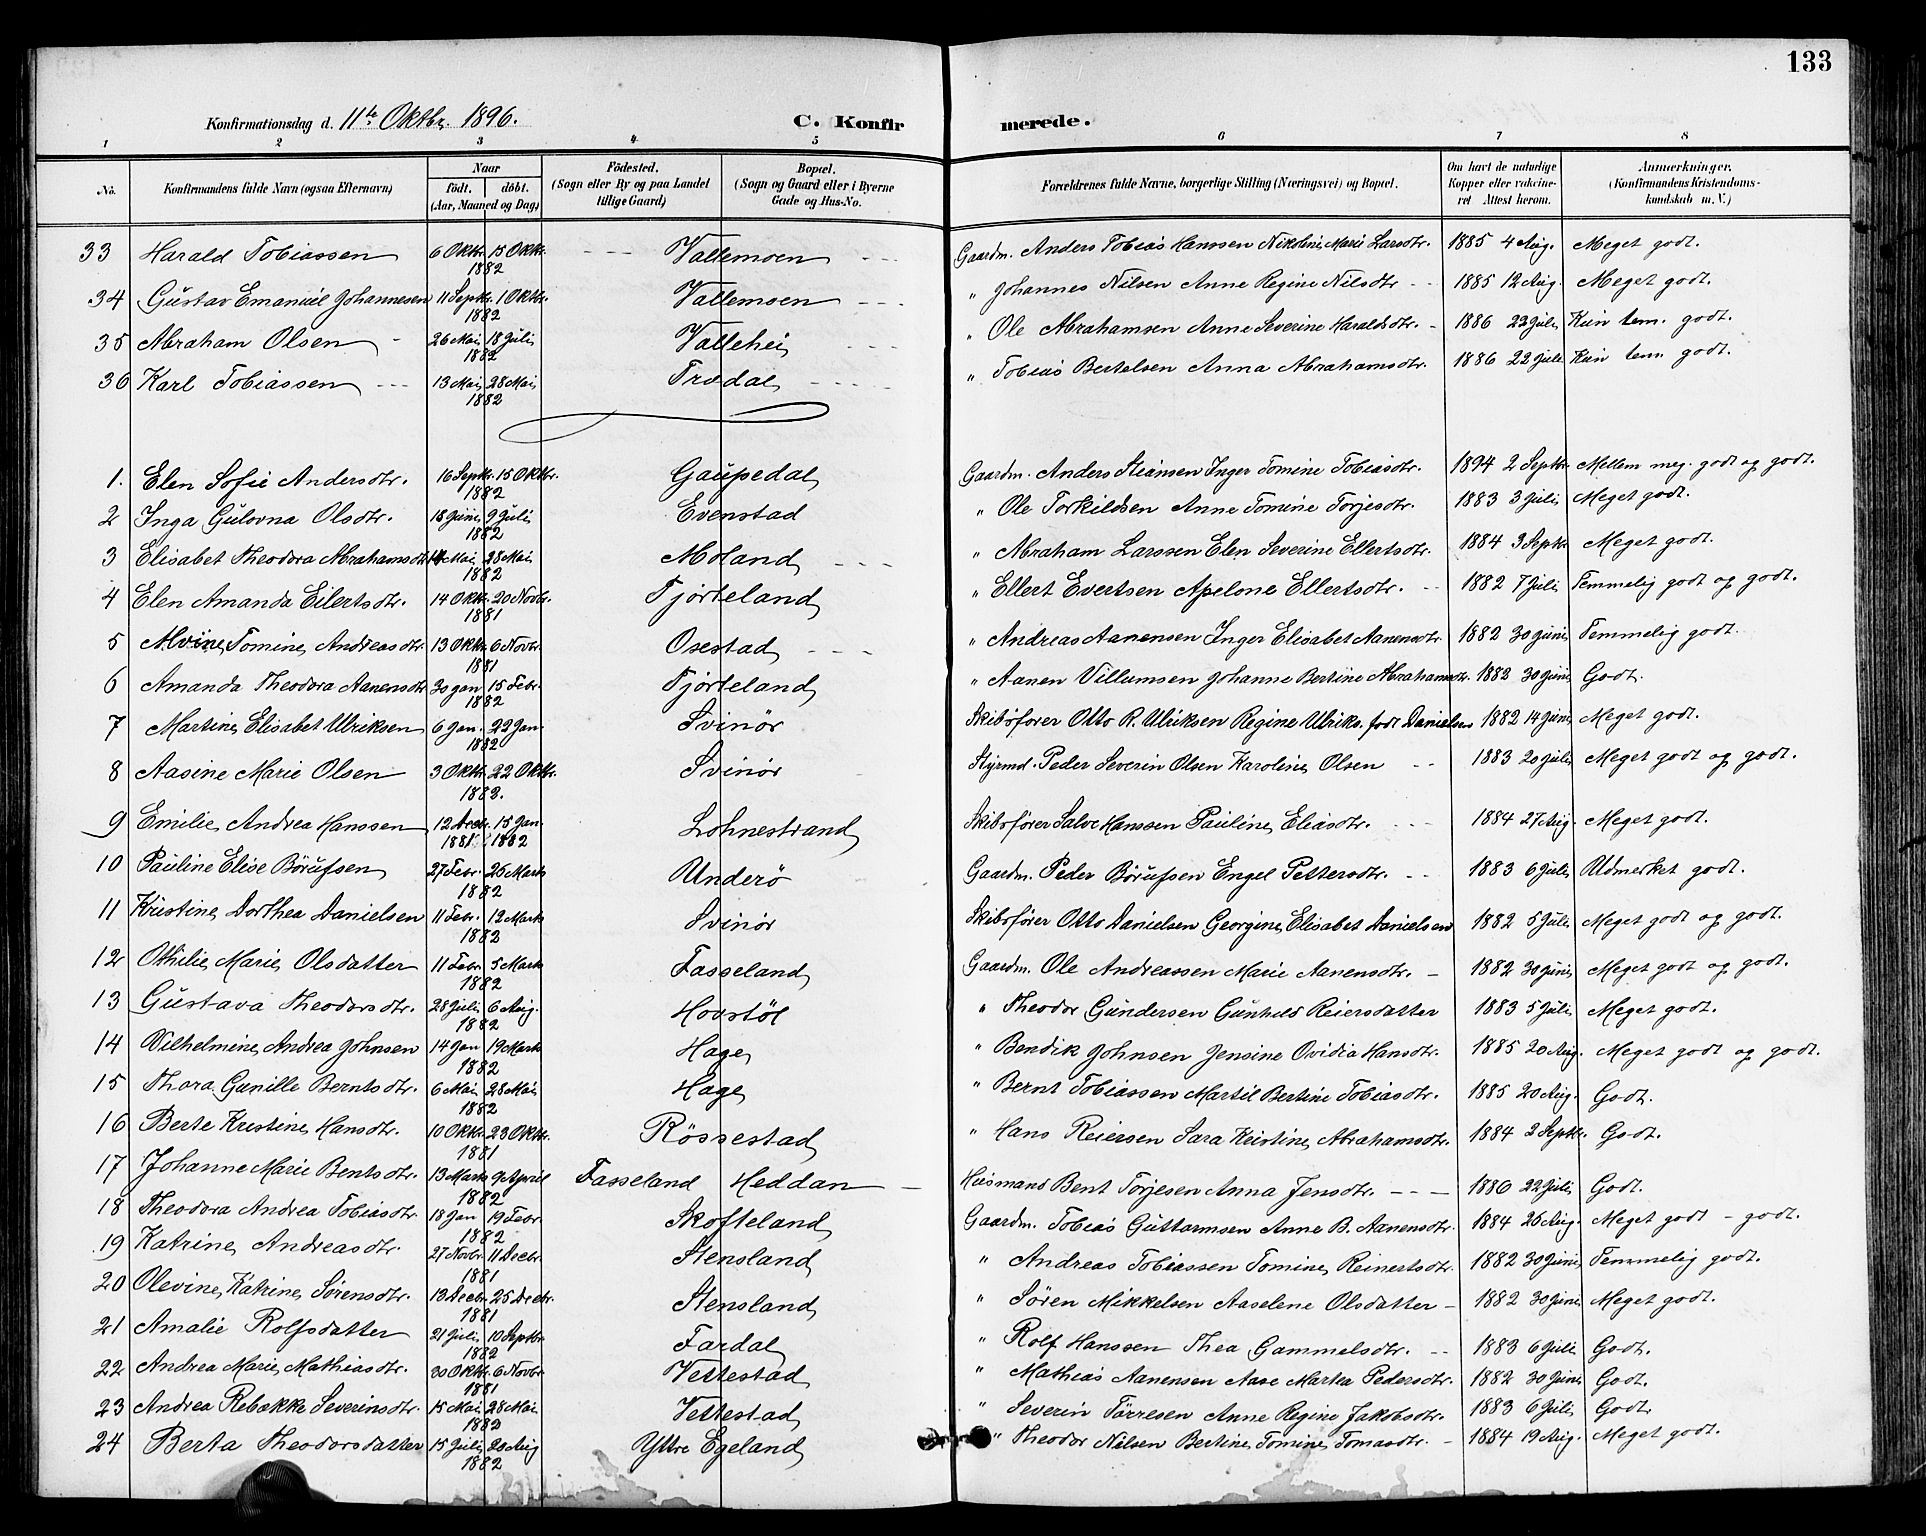 133
Konfirmationsdag d. 11te Oktbr. 1896. C. Konfirmerede.
1 2 3 4 5 6 7 8
No. Konfirmandens fulde Navn (ogsaa Efternavn) Naar födt. döbt. (Aar, Maaned og Dag) Födested. (Sogn eller By og paa Landet tillige Gaard) Bopæl. (Sogn og Gaard eller i Byerne Gade og Hus-No. Forældrenes fulde Navne, borgerlige Stilling (Næringsvei) og Bopæl. Om havt de naturlige Kopper eller vakcineret Attest herom. Anmerkninger. (Konfirmandens Kristendomskundskab m. V.)
33 Harald Tobiassen 6 Oktbr. 15 Oktbr. 1882 Vallemoen Gaardm. Anders Tobias Hanssen Nikoline Marie Larsdtr. 1885 4 Aug. Meget godt.
34 Gustav Emanuel Johannesen 11 Septbr. 1 Oktbr. 1882 Vallemoen " Johannes Nilsen Anne Regine Nilsdtr 1885 12 Aug. Meget godt.
35 Abraham Olsen 26 Mai 18 Juli 1882 Vallehei " Ole Abrahamsen Anne Severine Haraldsdtr. 1886 22 Juli Kun tem. godt.
36 Karl Tobiassen 13 Mai 28 Mai 1882 Trodal " Tobias Bertelsen Anna Abrahamsdtr. 1886 22 Juli Kun tem godt.
1. Elen Sofie Andersdtr. 16 Septbr. 15 Oktbr. 1882 Gaupedal Gaardm. Anders Stiansen Inger Tomine Tobiasdtr. 1894 2 Septbr. Mellem meg. godt og godt.
2 Inga Gulovna Olsdtr. 18 Juni 9 Juli 1882 Evenstad " Ole Torkildsen Anne Tomine Torjesdtr. 1883 3 Juli Meget godt.
3 Elisabet Theodora Abrahamsdtr 14 Mai 28 Mai 1882 Moland " Abraham Larssen Elen Severine Ellertsdtr. 1884 3 Septbr Meget godt.
4 Elen Amanda Eilertsdtr. 14 Oktbr. 20 Novbr. 1881 Fjorteland " Ellert Evertsen Apelone Ellertsdtr. 1882 7 Juli Temmelig godt og godt.
5 Alvine Tomine Andreasdtr. 13 Oktbr. 6 Novbr. 1881 Osestad " Andreas Aanensen Inger Elisabet Aanensdtr 1882 30 Juni Temmelig godt.
6 Amanda Theodora Aanensdtr 30 Jan 15 Febr. 1882 Fjorteland " Aanen Villumsen Johanne Bertine Abrahamsdtr. 1882 30 Juni Godt.
7 Martine Elisabet Ulriksen 6 Jan. 22 Jan. 1882 Svinör Skibsförer Otto R. Ulriksen Regine Ulriks. födt Danielsen 1882 14 Juni Meget godt.
8 Aasine Marie Olsen 3 Oktbr. 22 Oktbr. 1882. Svinör Styrmd. Peder Severin Olsen Karoline Olsen 1883 20 Juli Meget godt og godt.
9 Emilie Andrea Hanssen 12 Decbr. 15 Jan. 1881 1882 Lohnestrand Skibsförer Salve Hanssen Pauline Eliasdtr. 1884 27 Aug. Meget godt.
10 Pauline Elise Börufsen 27 Febr. 26 Marts 1882 Underö Gaardm. Peder Börufsen Engel Pettersdtr. 1883 6 Juli Udmerket godt.
11 Kristine Dorthea Danielsen 11 Febr. 12 Marts 1882 Svinör Skibsförer Otto Danielsen Georgine Elisabet Danielsen 1882 5 Juli Meget godt og godt.
12 Othilie Marie Olsdatter 11 Febr 5 Marts 1882 Fasseland Gaardm. Ole Andreassen Marie Aanensdtr. 1882 30 Juni Meget godt og godt.
13 Gustava Theodorsdtr. 28 Juli 6 Aug. 1882 Hovstöl " Theodor Gundersen Gunhild Reiersdatter 1883 5 Juli Meget godt.
14 Vilhelmine Andrea Johnsen 14 Jan 19 Marts 1882 Hage " Bendik Johnsen Jensine Ovidia Hansdtr. 1885 20 Aug. Meget godt og godt.
15 Thora Gunille Berntsdtr. 6 Mai 28 Mai 1882 Hage " Bernt Tobiassen Martil Bertine Tobiasdtr. 1885 20 Aug. Godt.
16 Berte Kristine Hansdtr. 10 Oktbr. 23 Oktbr. 1881 Rössestad " Hans Reiersen Sara Kristine Abrahamsdtr. 1884 2 Septbr. Godt.
17 Johanne Marie Bentsdtr. 13 Marts 9 April 1882 Fasseland Heddan Husmand Bent Torjesen Anna Jensdtr. 1886 22 Juli Godt.
18 Theodora Andrea Tobiasdtr. 18 Jan 19 Febr. 1882 Skofteland Gaardm. Tobias Guttormsen Anne B. Aanensdtr. 1884 26 Aug. Meget godt - godt.
19 Katrine Andreasdtr. 27 Novbr. 11 Decbr. 1881 Stensland " Andreas Tobiassen Tomine Reinertsdtr. 1882 30 Juni Temmelig godt.
20 Olevine Katrine Sörensdtr. 13 Decbr. 25 Decbr. 1881 Stensland " Sören Mikkelsen Aaselene Olsdatter 1882 30 Juni Meget godt.
21 Amalie Rolfsdatter 21 Juli 10 Septbr 1882 Fardal " Rolf Hanssen Thea Gammelsdtr. 1883 6 Juli Godt.
22 Andrea Marie Mathiasdtr. 30 Oktbr. 6 Novbr. 1881 Vettestad " Mathias Aanensen Aase Martea Pedersdtr. 1882 30 Juni Godt.
23 Andrea Rebække Severinsdtr. 15 Mai 28 Mai 1882 Vettestad " Severin Törresen Anne Regine Jakobsdtr. 1883 6 Juli Godt.
24 Berta Theodorsdatter 15 Juli 20 Aug 1882 Yttre Egeland " Theodor Nilsen Bertine Tomine Tomasdtr. 1884 19 Aug. Meget godt.